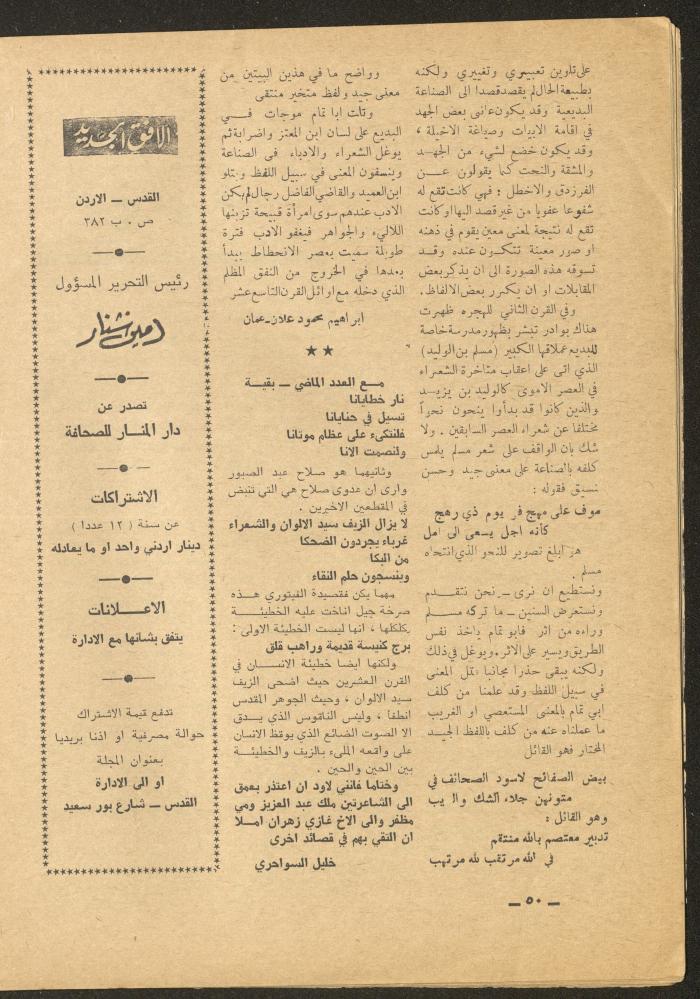 على تلوين تعبيري وتغييري ولكنه
بطبيعة الحال لم يقصد قصدا الى الصناعة
البديعية وقد يكون عانى بعض الجهد
في اقامة الابيات وصياغة الاخيلة ،
وقد يكون خضع لشيء من الجهد
والمشقة والنحت كما يقولون عن
الفرزدق والاخطل : فهي كانت تقع له
شفوعا عفويا من غير قصد اليها او كانت
تقع له نتيجة لمعنى معين يقوم في ذهنه
او صور معينة تتكون عنده وقد
تسوقه هذه الصورة الى ان يذكر بعض
المقابلات او ان يكرر بعض الالفاظ .
وفي القرن الثاني للهجرة ظهرت
هناك بوادر تبشر بظهور مدرسة خاصة
للبديع عملاقها الكبير ( مسلم بن الوليد )
الذي اتى على اعقاب متأخرة الشعراء
في العصر الاموي كالوليد بن يزيد
والذين كانوا قد بدأوا ينحون نحواً
مختلفا عن شعراء العصر السابقين . ولا
شك بان الواقف على شعر مسلم يلمس
كلفه بالصناعة على معنى جيد وحسن
نسيق فقوله :
موف على مهج في يوم ذي رهج
كأنه اجل يسعى الى امل
هو ابلغ تصوير للنحو الذي انتحاه
مسلم .
ونستطيع ان نرى ــ نحن نتقدم
ونستعرض السنين ــ ما تركه مسلم
وراءه من اثر فابو تمام يأخذ نفس
الطريق ويسير على الاثر . ويوغل في ذلك
ولكنه يبقى حذرا مجانبا قتل المعنى
في سبيل اللفظ وقد علمنا من كلف
ابي تمام بالمعنى المستعصي او الغريب
ما عملناه عنه من كلف باللفظ الجيد
المختار فهو القائل
بيض الصفائح لاسود الصحائف في
متونهن جلاء الشك والريب
وهو القائل :
تدبير معتصم بالله منتقم
لله مرتقب في الله مرتهب
وواضح ما في هذين البيتين من
معنى جيد ولفظ متخير منتقى
وتلت ابا تمام موجات في
البديع على لسان ابن المعتز واضرابه ثم
يوغل الشعراء والادباء في الصناعة
وينسفون المعنى في سبيل اللفظ ويتلو
ابن العميد والقاضي الفاضل رجال لم يكن
الادب عندهم سوى امرأة قبيحة تزينها
اللآليء والجواهر فيغفو الادب فترة
طويلة سميت بعصر الانحطاط يبدأ
بعدها في الخروج من النفق المظلم
الذي دخله مع اوائل القرن التاسع عشر
ابراهيم محمود علان ــ عمان
★ ★
مع العدد الماضي ــ بقية
نار خطايانا
تسيل في حنايانا
فلنتكىء على عظام موتانا
ولنصمت الانا
وثانيهما هو صلاح عبد الصبور
وارى ان عدوى صلاح هي التي تنبض
في المقطعين الاخيرين .
لا يزال الزيف سيد الالوان والشعراء
غرباء يجردون الضحكا
من البكا
وينسجون حلم النقاء
مهما يكن فقصيدة الفيتوري هذه
صرخة جيل اناخت عليه الخطيئة
بكلكلها ، انها ليست الخطيئة الاولى :
برج كنيسة قديمة وراهب قلق
ولكنها ايضا خطيئة الانسان في
القرن العشرين حيث اضحى الزيف
سيد الالوان ، وحيث الجوهر المقدس
انطفأ ، وليس الناقوس الذي يدق
الا الصوت الضائع الذي يوقظ الانسان
على واقعه المليء بالزيف والخطيئة
بين الحين والحين .
وختاما فانني لاود ان اعتذر بعمق
الى الشاعرتين ملك عبد العزيز ومي
مظفر والى الاخ غازي زهران املا
ان التقي بهم في قصائد اخرى
خليل السواحري
الافق الجديد
القدس ــ الاردن
ص . ب ٣٨٢
رئيس التحرير المسؤول
امين شنار
تصدر عن
دار المنار للصحافة
الاشتراكات
عن سنة ( ١٢ عددا )
دينار اردني واحد او ما يعادله
الاعلانات
يتفق بشانها مع الادارة
تدفع قيمة الاشتراك
حوالة مصرفية او اذنا بريديا
بعنوان المجلة
او الى الادارة
القدس ــ شارع بور سعيد
ــ ٥٠ ــ